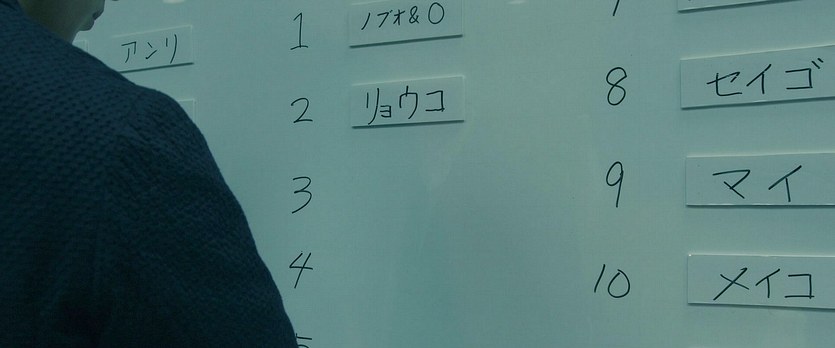 アンリ
1 ノブオ&O
2 リョウコ
3
4
8 セイゴ
9 マイ
10 メイコ